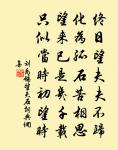 終日望夫夫不歸
化為孤石苦相思
望來已是幾千載
只似當時初望時
劉禹錫望夫石詞與調